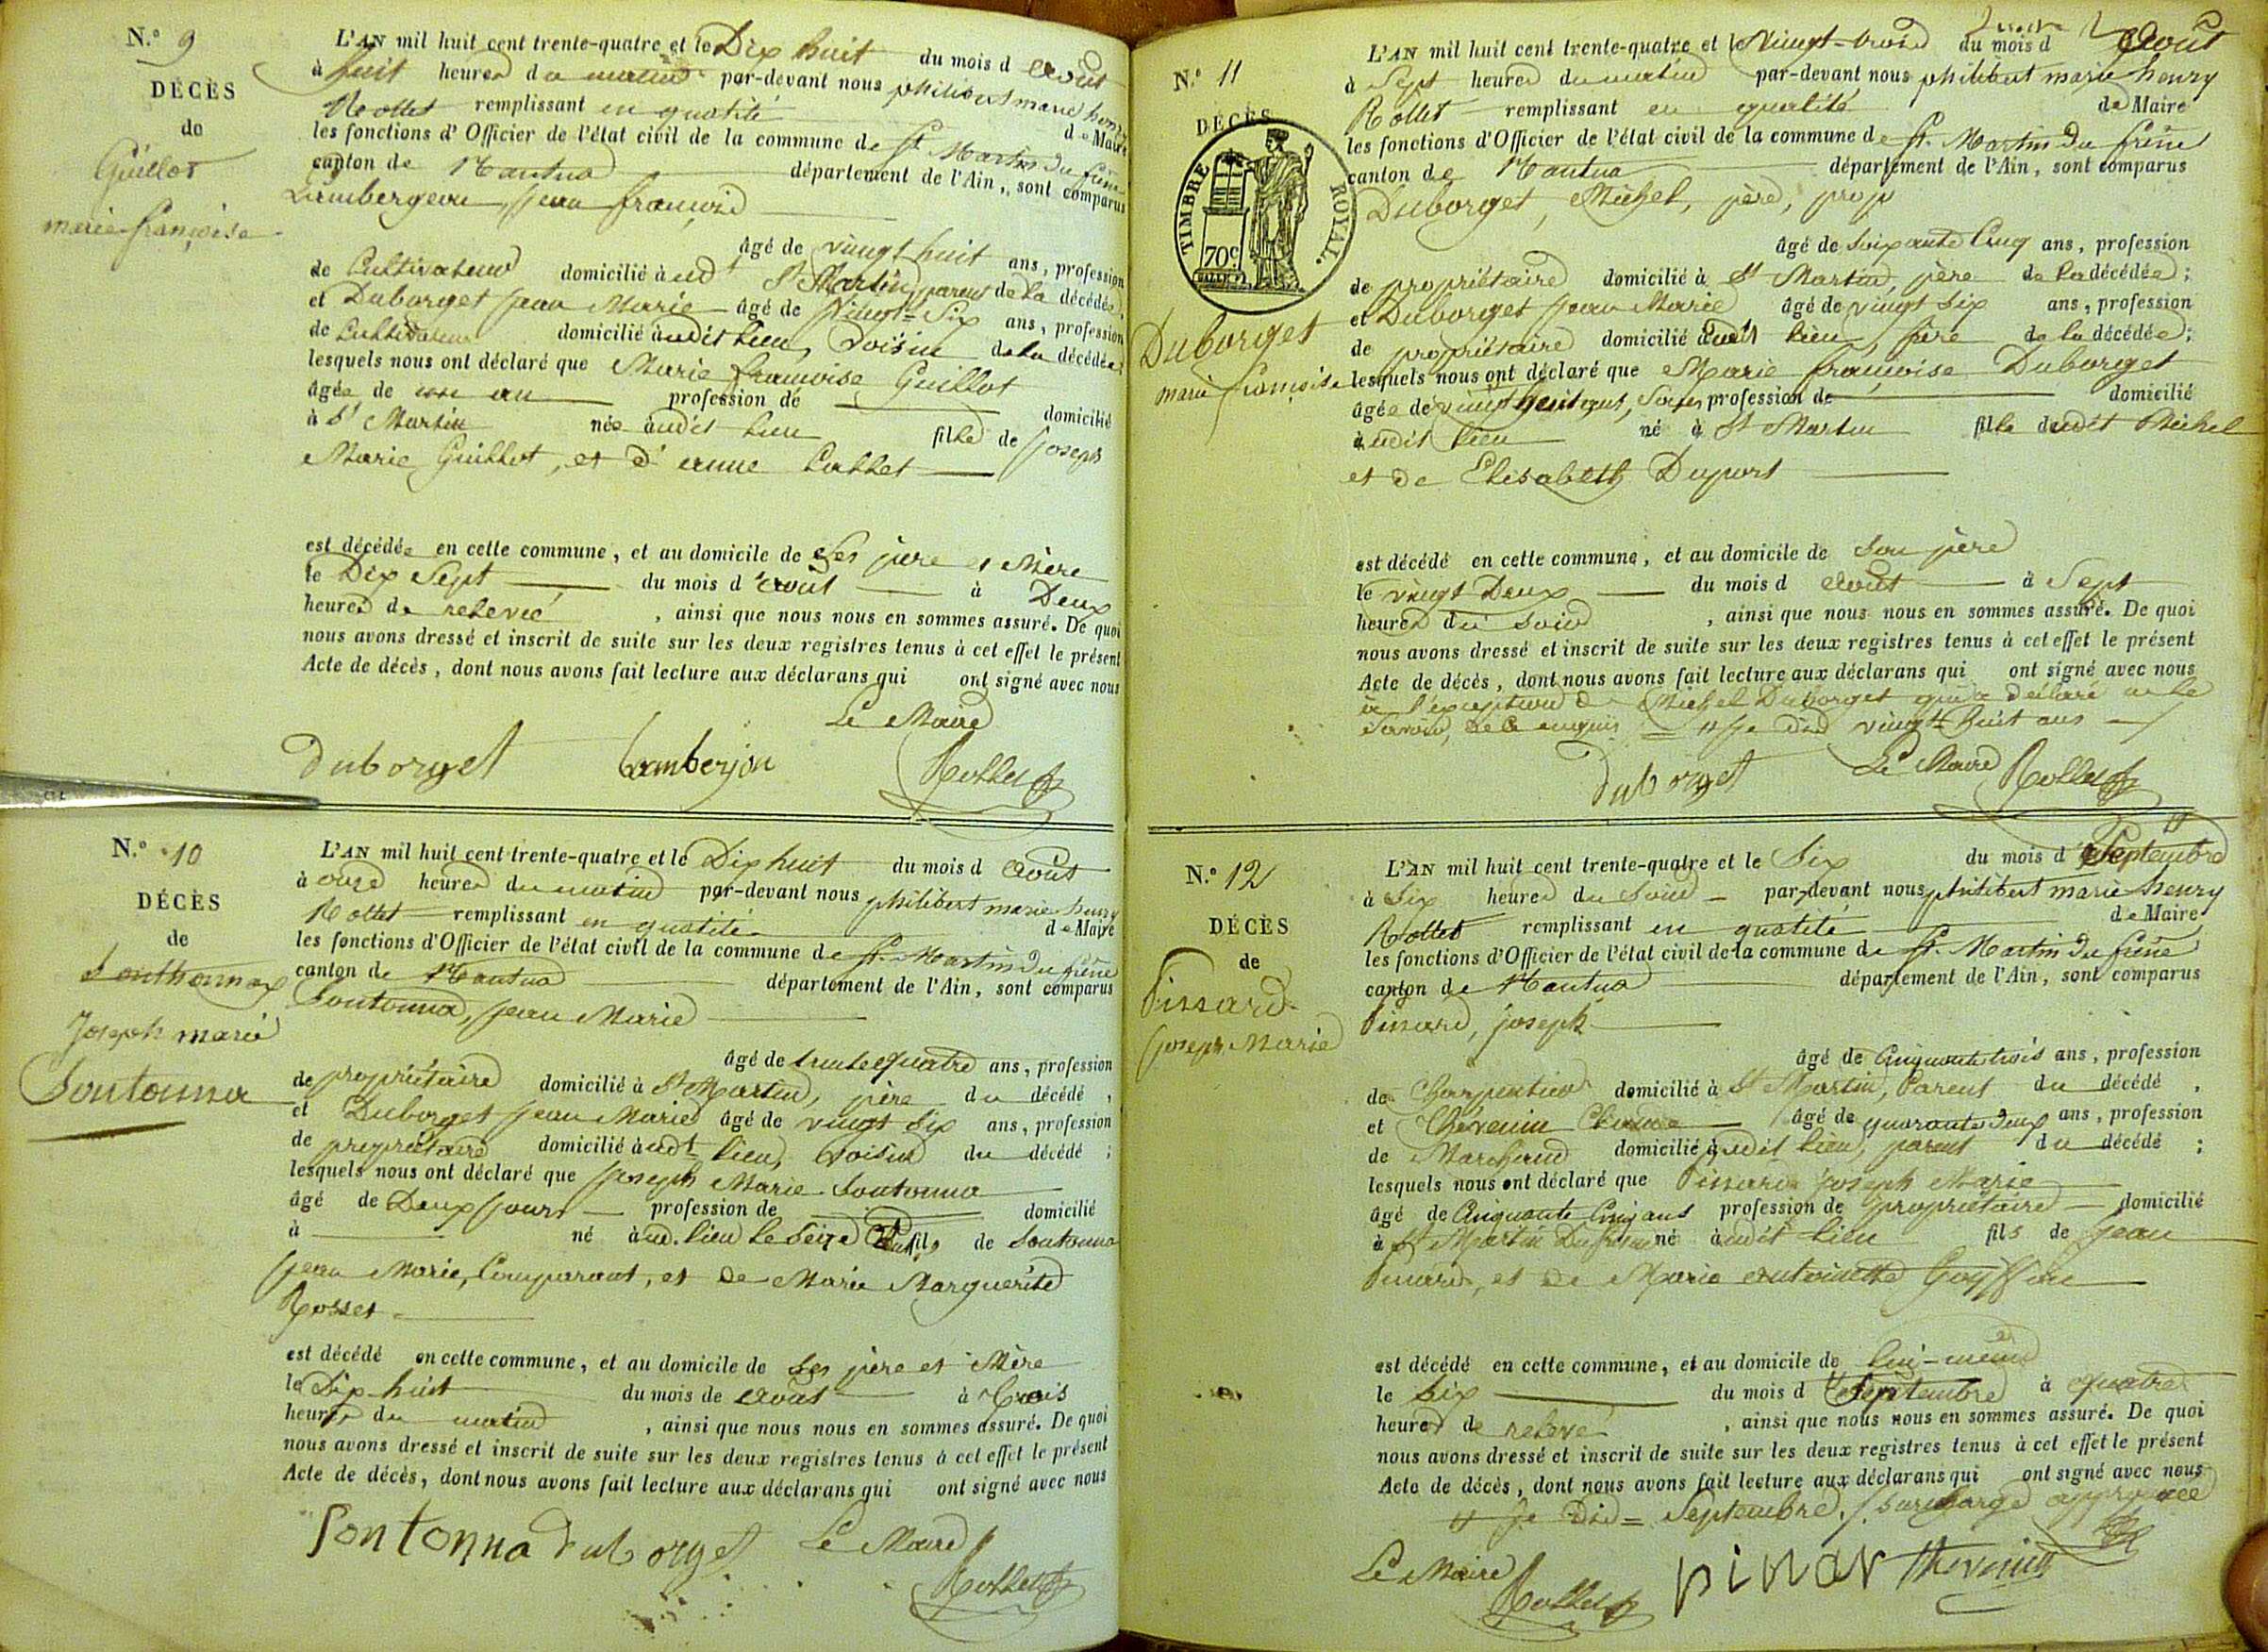 N.º 9
DÉCÈS
de
Guillot
marie françoise
L'AN mil huit cent trente-quatre et le Dix huit du mois d Août
à huit heures du matin par-devant nous philibert marie henry
Rollet remplissant en qualité de Maire
les fonctions d'Officier de l'état civil de la commune de St. Martin du frêne
canton de Nantua département de l'Ain, sont comparus
jean françois
âgé de vingt huit ans, profession
de Cultivateur domicilié à St Martin parent de la décédée,
et Duborget jean Marie âgé de Vingt-Six ans, profession
de Cultivateur domicilié audit lieu, voisin de la décédée;
lesquels nous ont déclaré que Marie françoise Guillot
âgée de un an profession de domicilié
à St Martin née audit lieu fille de joseph
Marie Guillot, et d'anne
est décédée en cette commune, et au domicile de Ses père et Mère
le Dix Sept du mois d'Août à Deux
heures de relevé, ainsi que nous nous en sommes assuré. De quoi
nous avons dressé et inscrit de suite sur les deux registres tenus à cet effet le présent
Acte de décès, dont nous avons fait lecture aux déclarans qui ont signé avec nous
Le Maire
duborget Lamberjon Rollet
N.º 10
DÉCÈS
de
Sonthonnax
Joseph marie
Sontonna
L'AN mil huit cent trente-quatre et le Dix huit du mois d Août
à onze heures du matin par-devant nous philibert marie henry
Rollet remplissant en qualité de Maire
les fonctions d'Officier de l'état civil de la commune de St. Martin du frêne
canton de Nantua département de l'Ain, sont comparus
Sontonna, jean Marie
âgé de trente quatre ans, profession
de propriétaire domicilié à St Martin, père du décédé,
et Duborget jean Marie âgé de vingt Six ans, profession
de propriétaire domicilié audt lieu, voisin du décédé;
lesquels nous ont déclaré que joseph Marie Sontonna
âgé de Deux jours profession de domicilié
à né aud. lieu le Seize fils de Sontonna
jean Marie, Comparant, et de Marie Marguerite
Rosset
est décédé en cette commune, et au domicile de Ses père et Mère
le Dix huit du mois de Août à trois
heures du matin, ainsi que nous nous en sommes assuré. De quoi
nous avons dressé et inscrit de suite sur les deux registres tenus à cet effet le présent
Acte de décès, dont nous avons fait lecture aux déclarans qui ont signé avec nous
Sontonna duborget Le Maire
Rollet
N.º 11
DÉCÈS
TIMBRE ROYAL.
70c
Duborget
marie françoise
L'AN mil huit cent trente-quatre et le Vingt-trois du mois d Août
à Sept heures du matin par-devant nous philibert marie henry
Rollet remplissant en qualité de Maire
les fonctions d'Officier de l'état civil de la commune de St. Martin du frêne
canton de Nantua département de l'Ain, sont comparus
Duborget, Michel, père, prop
âgé de Soixante Cinq ans, profession
de propriétaire domicilié à St Martin, père de la décédée;
et Duborget jean Marie âgé de vingt Six ans, profession
de propriétaire domicilié audt lieu, frère de la décédée;
lesquels nous ont déclaré que Marie françoise Duborget
âgée de vingt huit ans, profession de domicilié
audit lieu né à St Martin fille dudit Michel
et de Elisabeth Duport
est décédé en cette commune, et au domicile de Son père
le vingt Deux du mois d Août à Sept
heures du soir, ainsi que nous nous en sommes assuré. De quoi
nous avons dressé et inscrit de suite sur les deux registres tenus à cet effet le présent
Acte de décès, dont nous avons fait lecture aux déclarans qui ont signé avec nous
à l'exception de Michel Duborget qui a déclaré ne le
Savoir, de ce enquis je dis vingt huit ans
duborget Le Maire Rollet
N.º 12
DÉCÈS
de
Pinard
joseph Marie
L'AN mil huit cent trente-quatre et le Six du mois d Septembre
à Six heures du Soir par-devant nous philibert marie henry
Rollet remplissant en qualité de Maire
les fonctions d'Officier de l'état civil de la commune de St. Martin du frêne
canton de Nantua département de l'Ain, sont comparus
Pinard, joseph
âgé de Cinquante trois ans, profession
de Charpentier domicilié à St Martin, Parent du décédé,
et Thévenin âgé de quarante deux ans, profession
de Marchand domicilié audit lieu, parent du décédé;
lesquels nous ont déclaré que Pinard joseph Marie
âgé de Cinquante Cinq ans profession de propriétaire domicilié
à St Martin Dufresne né audit lieu fils de jean
Pinard, et de Marie Antoinette
est décédé en cette commune, et au domicile de lui-même
le Six du mois d Septembre à quatre
heures de relevé, ainsi que nous nous en sommes assuré. De quoi
nous avons dressé et inscrit de suite sur les deux registres tenus à cet effet le présent
Acte de décès, dont nous avons fait lecture aux déclarans qui ont signé avec nous
je Dis = Septembre. surcharge approuvée
Le Maire Rollet pinar thevenin